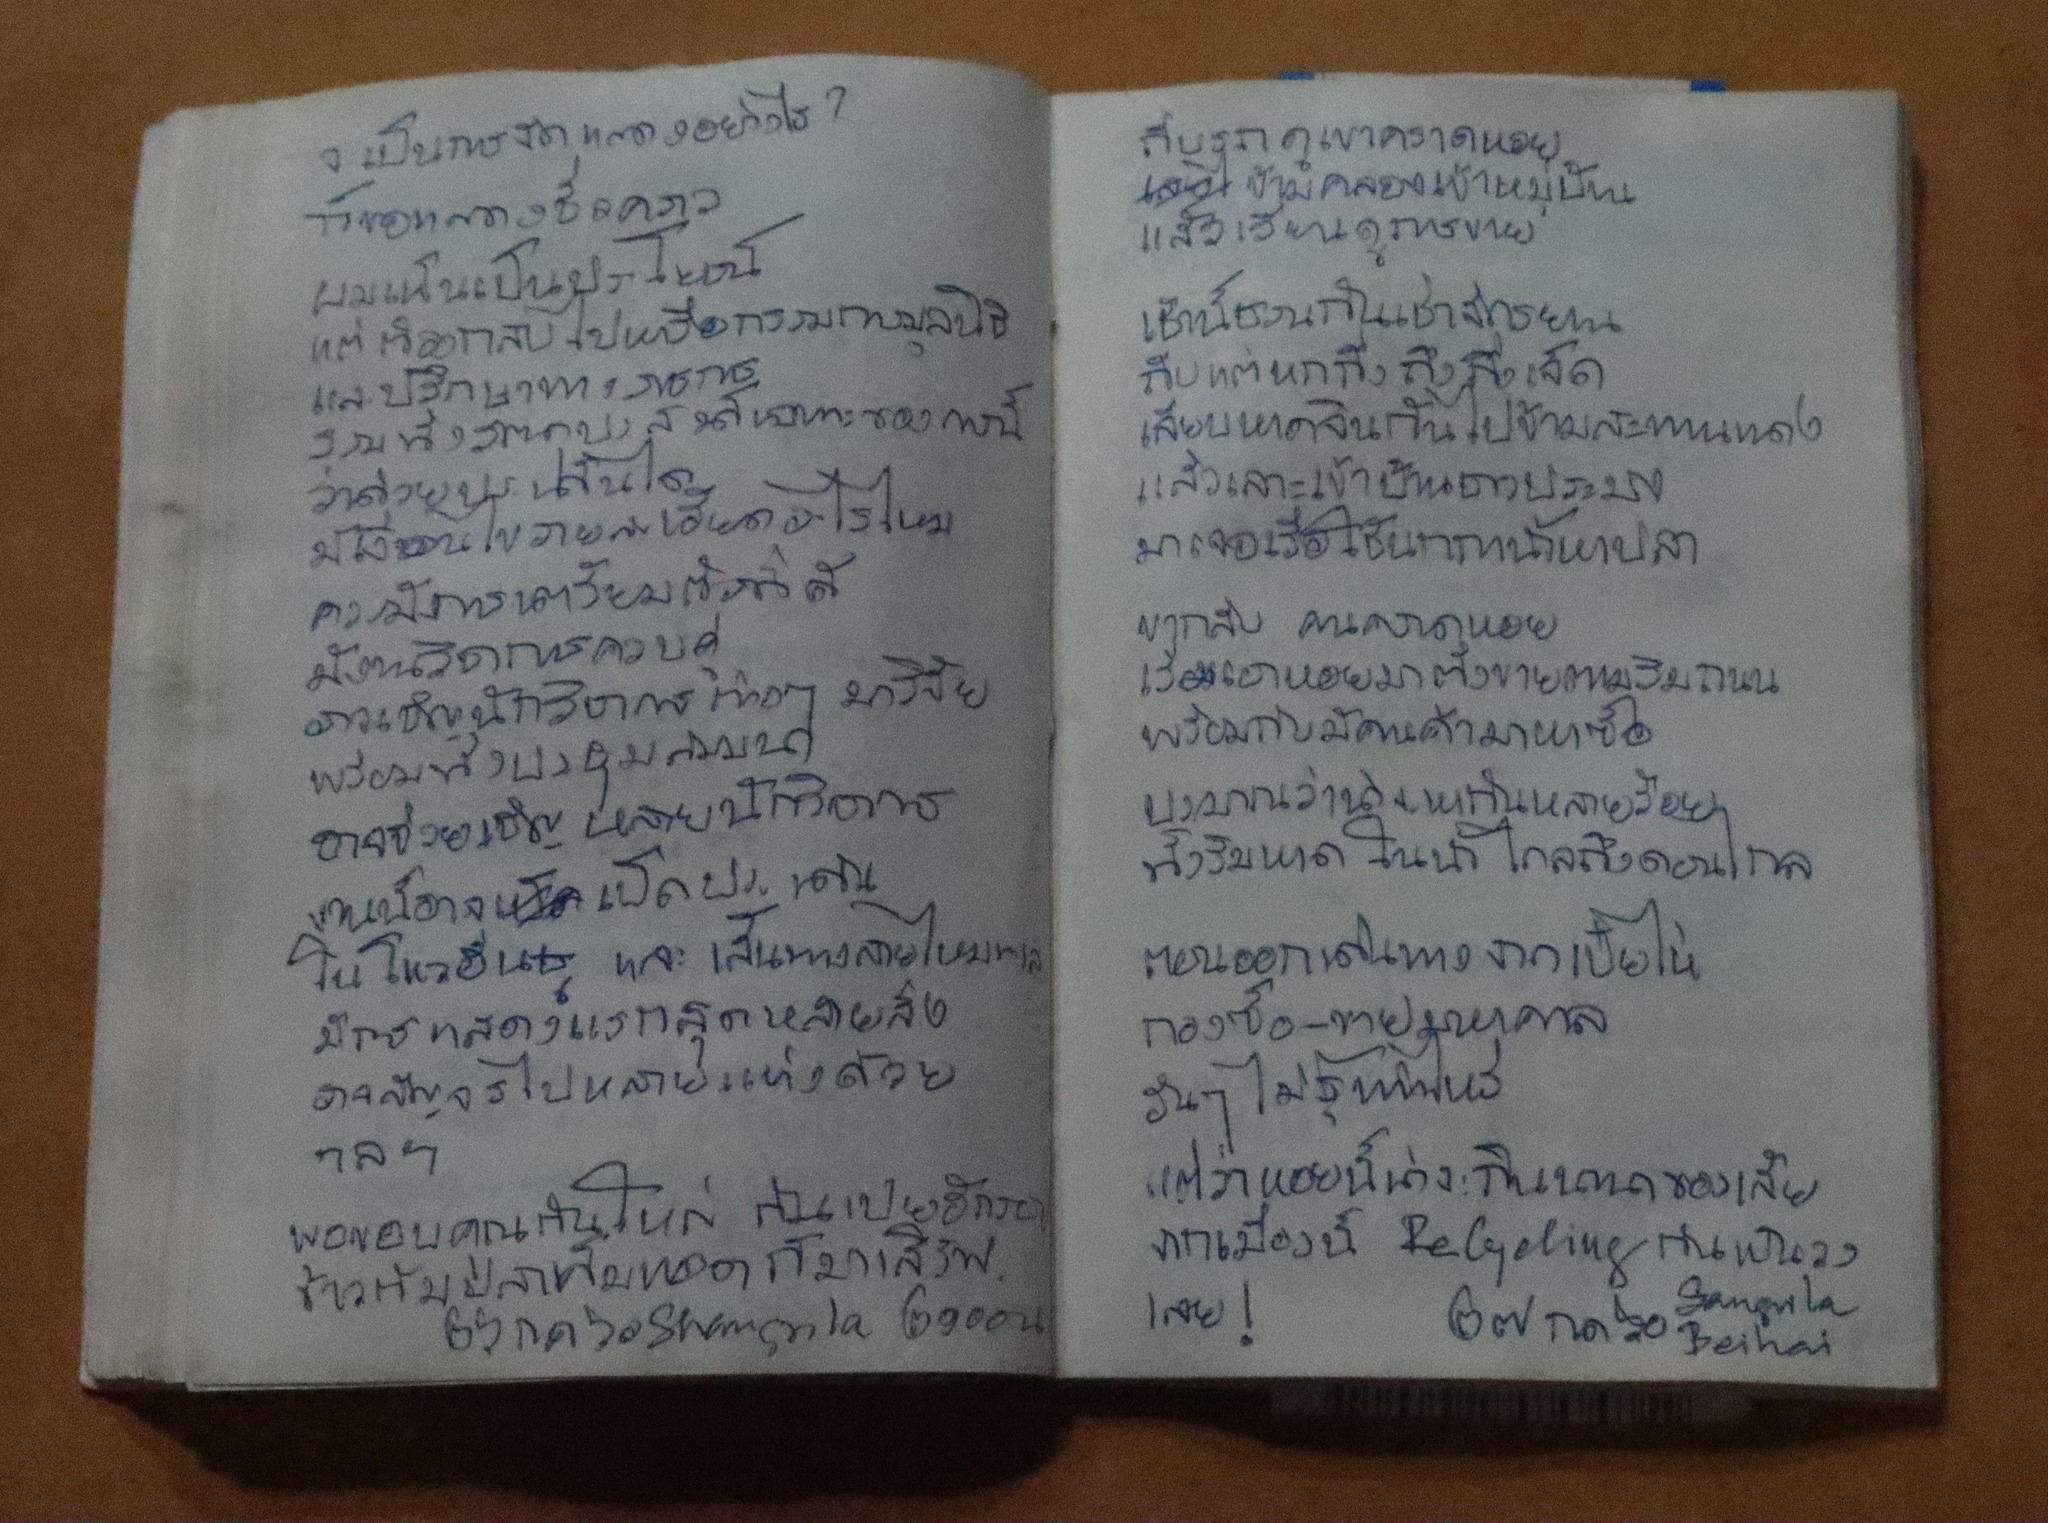 จะเป็นการจัดแสดงอย่างไร?
ก็ขอแสดงชั่วคราว
ผมเห็นเป็นประโยชน์
แต่ต้องกลับไปหารือกรรมการมูลนิธิ
และปรึกษาทางราชการ
รวมทั้งวัตถุประสงค์เฉพาะของการนี้
ว่าด้วยประเด็นใด
มีเงื่อนไขรายละเอียดอะไรไหม
ควรมีการเตรียมเรื่องนี้ดี
มีงานวิชาการควบคู่
อาจเชิญนักวิชาการเก่งๆ มาวิจัย
พร้อมทั้งประชุมสัมมนา
อาจช่วยเชิญหลายนักวิชาการ
งานนี้อาจ เปิดประเด็น
ในโหวอื่นๆ และ เส้นทางสายไหมทะเล
มีการแสดงแรกสุดหลายสิ่ง
อาจสัญจรไปหลายแห่งด้วย
ฯลฯ
พอขอบคุณกันใหญ่
ข้าวต้มปลาทับทอด ก็มาเสิร์ฟ.
๒๖ กค ๖๐ Shangrila ๒๑๐๐น
ถีบรถดูเขาคราดหอย
ข้ามคลองเข้าหมู่บ้าน
แล้วเวียนดูการขาย
เช้านี้ชวนกันเช่าจักรยาน
ถีบแต่หกถึง ถึงเจ็ด
เลียบหาดจีนกันไปข้ามสะพานแดง
แล้วเลาะเข้าบ้านชาวประมง
มาเจอเรื่องใช้นกกาน้ำหาปลา
ขากลับ คนคราดหอย
เริ่มเอาหอยมาตั้งขายตามริมถนน
พร้อมกับมีคนค้ามาหาซื้อ
ประมาณว่าน่าจะหากันหลายร้อย
ทั้งริมหาด ในน้ำ ไกลถึงดอนไกล
ตอนออกเดินทางจากเป๋ยไห่
กองซื้อ-ขายมหาศาล
อื่นๆ ไม่รู้ที่ไหน
แต่ว่าหอยนี้น่าจะกินบาดาลของเสีย
จากเมืองนี้ ReCycling กันเป็นวง
เลย!
๒๗ กค ๖๐ Sangrila
Beihai